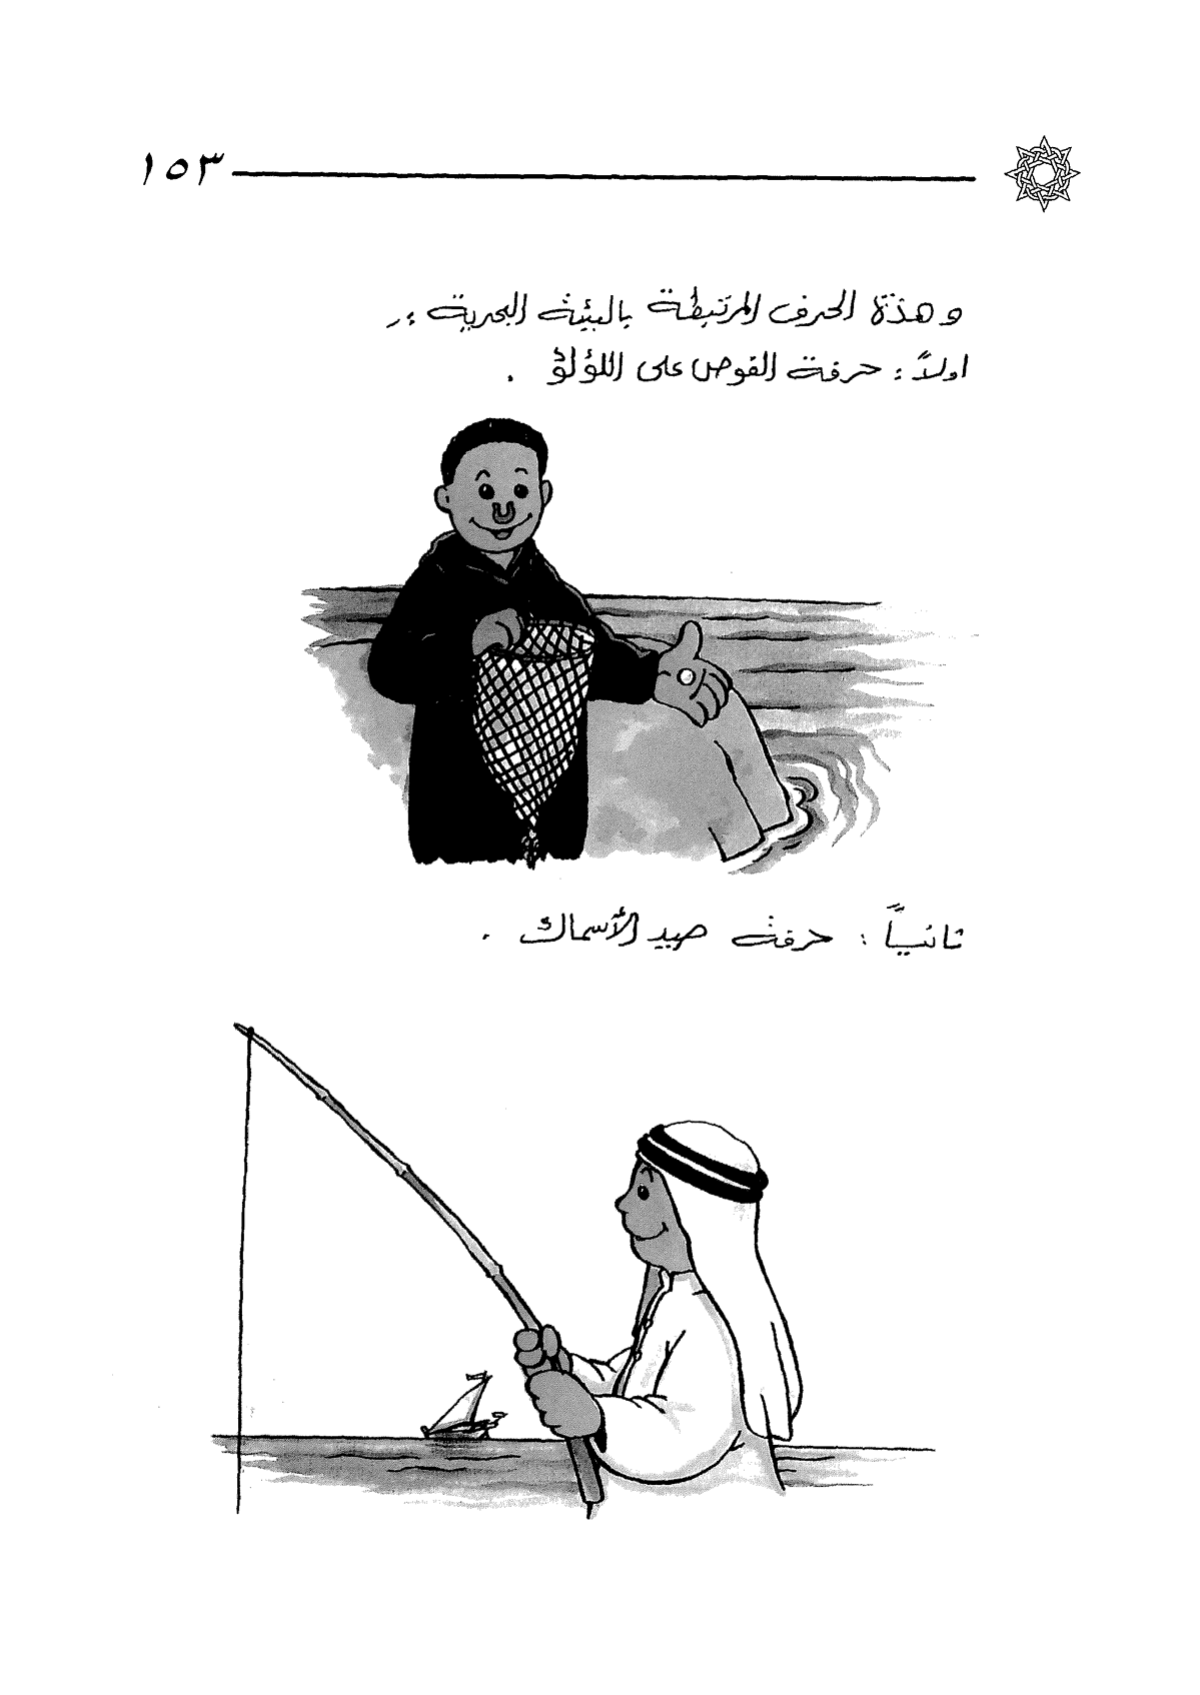 ١٥٣
وهذة الحرف المرتبطة بالبيئة البحرية :ـ
اولاً : حرفة الغوص على اللؤلؤ .
ثانيــاً : حرفة صيد الأسماك .